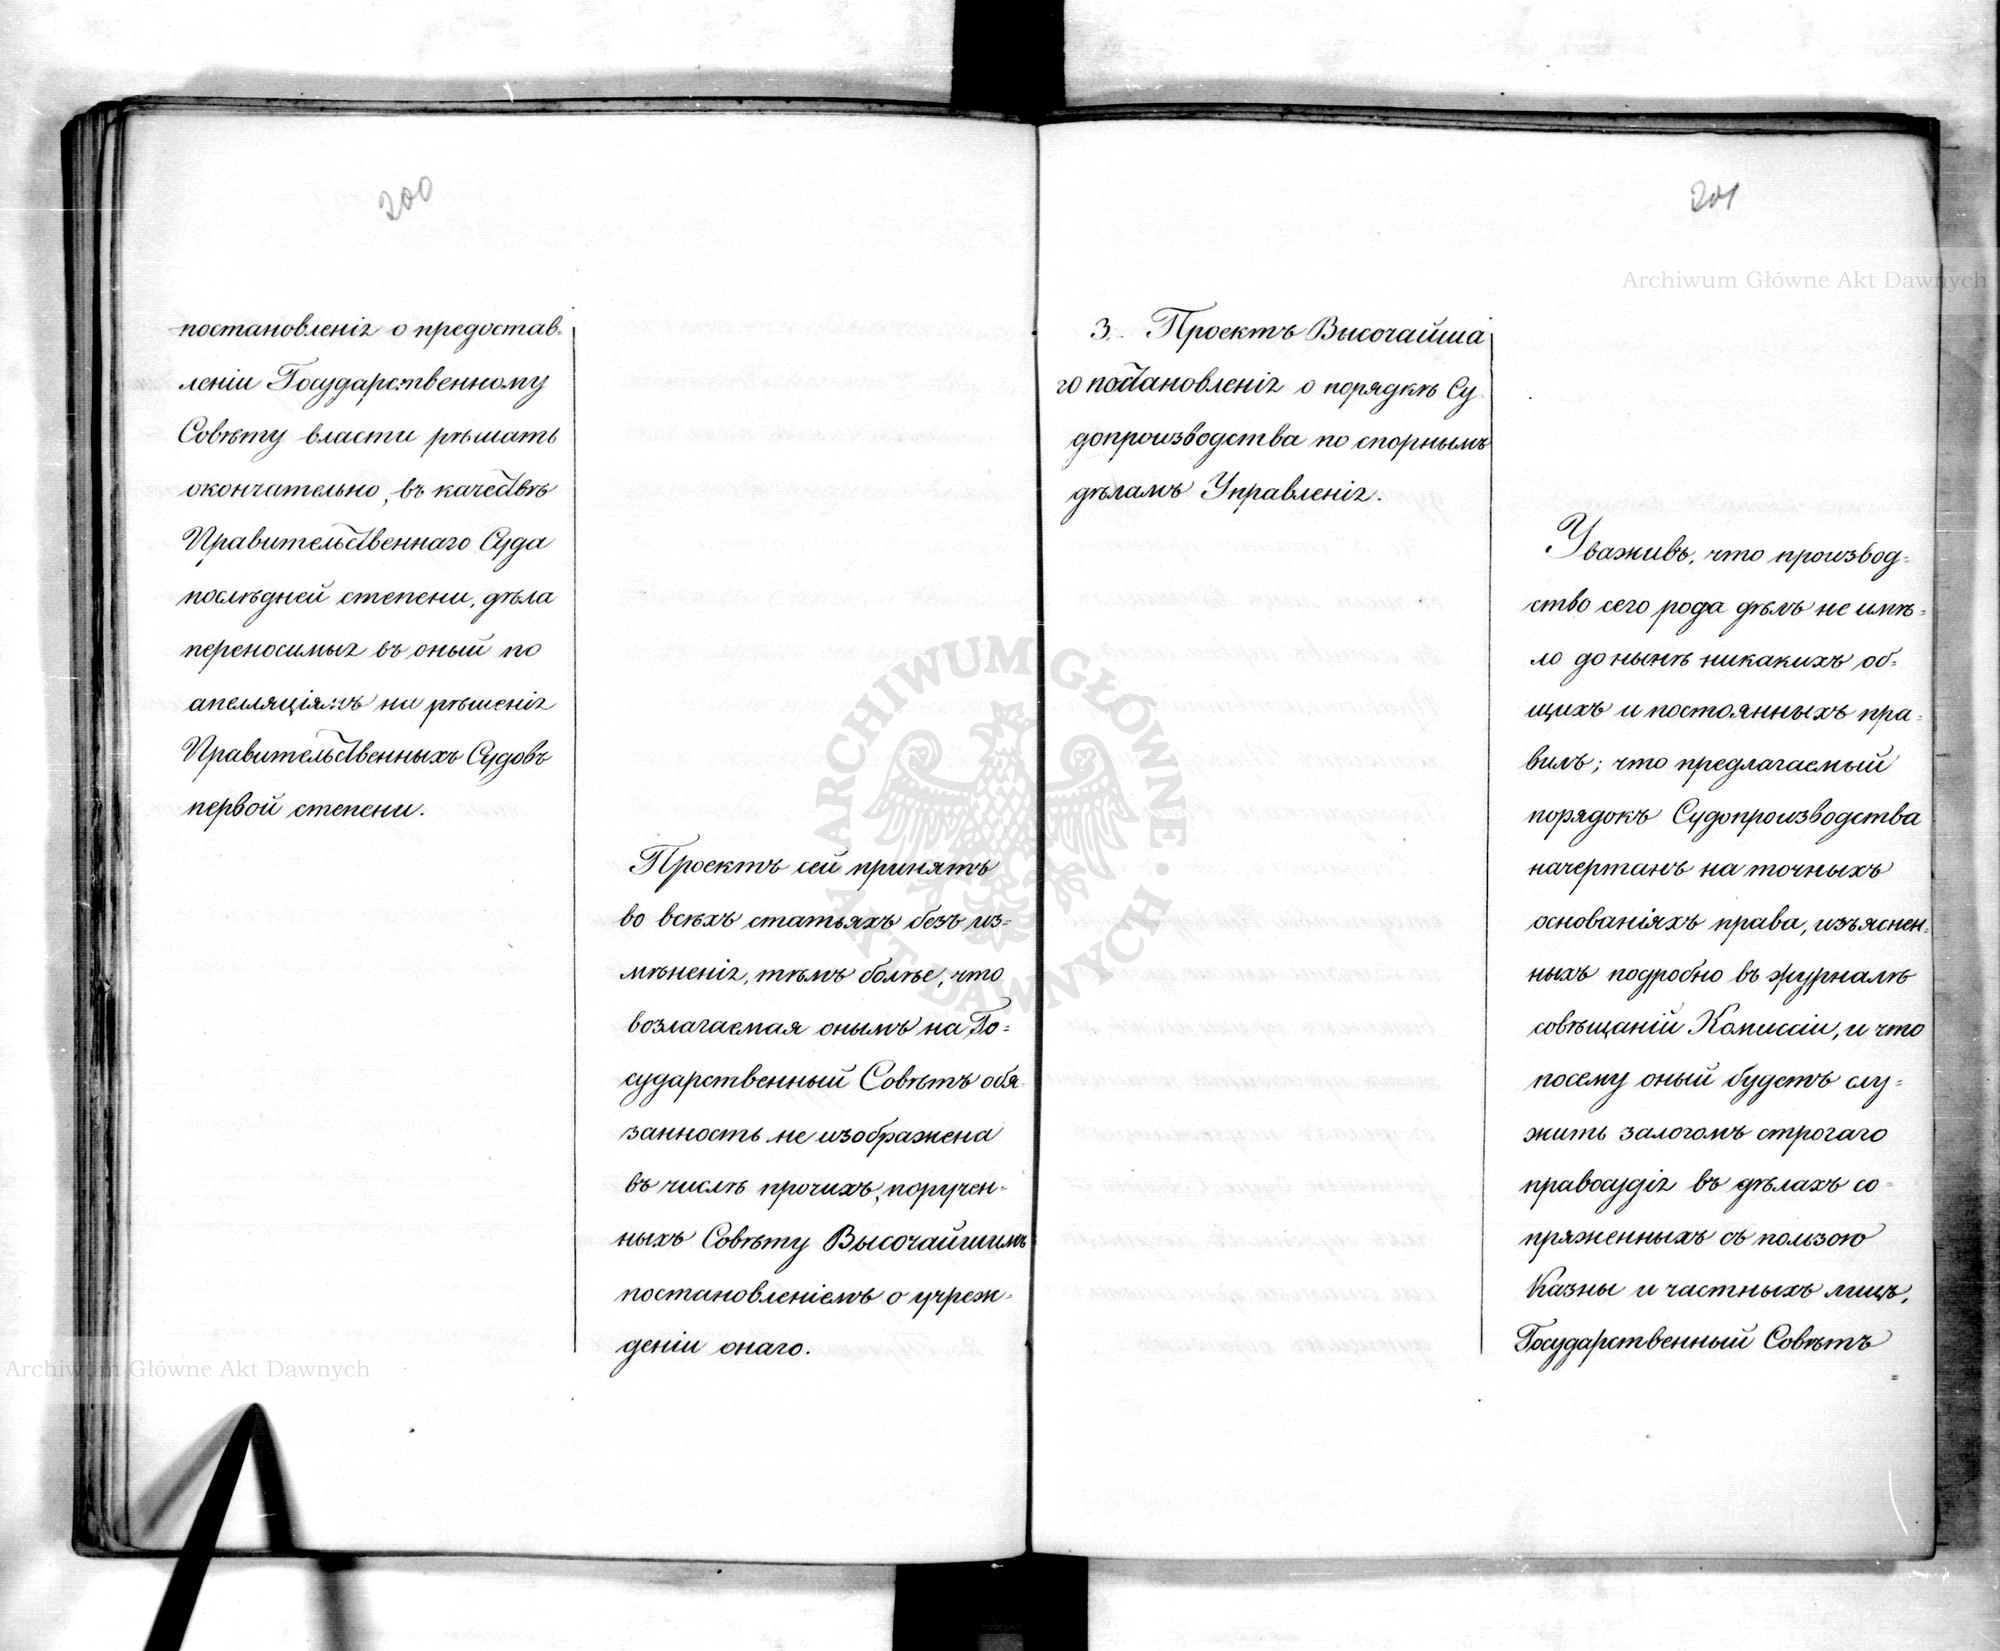 200
постановленія о предостав-
леніи Государственному
Совѣту власти рѣшать
окончательно, въ качествѣ
Правительственнаго Суда
послѣдней степени, дѣла
переносимыя въ оный по
апелляціямъ на рѣшенія
Правительственныхъ Судовъ
первой степени.
Проектъ сей принятъ
во всѣхъ статьяхъ безъ из=
мѣненія, тѣмъ болѣе, что
возлагаемая онымъ на Го=
сударственный Совѣтъ обя-
занность не изображена
въ числѣ прочихъ, поручен-
ныхъ Совѣту Высочайшимъ
постановленіемъ о учреж=
деніи онаго.
201
3. Проектъ Высочайша
го постановленія о порядкѣ Су-
допроизводства по спорнымъ
дѣламъ Управленія.
Уваживъ, что производ=
ство сего рода дѣлъ не имѣ=
ло донынѣ никакихъ об=
щихъ и постоянныхъ пра=
вилъ; что предлагаемый
порядокъ Судопроизводства
начертанъ на точныхъ
основаніяхъ права, изъяснен=
ныхъ подробно въ журналѣ
совѣщаній Комиссіи, и что
посему оный будетъ слу=
жить залогомъ строгаго
правосудія въ дѣлахъ со=
пряженныхъ съ пользою
Казны и частныхъ лицъ,
Государственный Совѣтъ
=
Archiwum Główne Akt Dawnych
ARCHIWUM GŁÓWNE · AKT DAWNYCH ·
Archiwum Główne Akt Dawnych